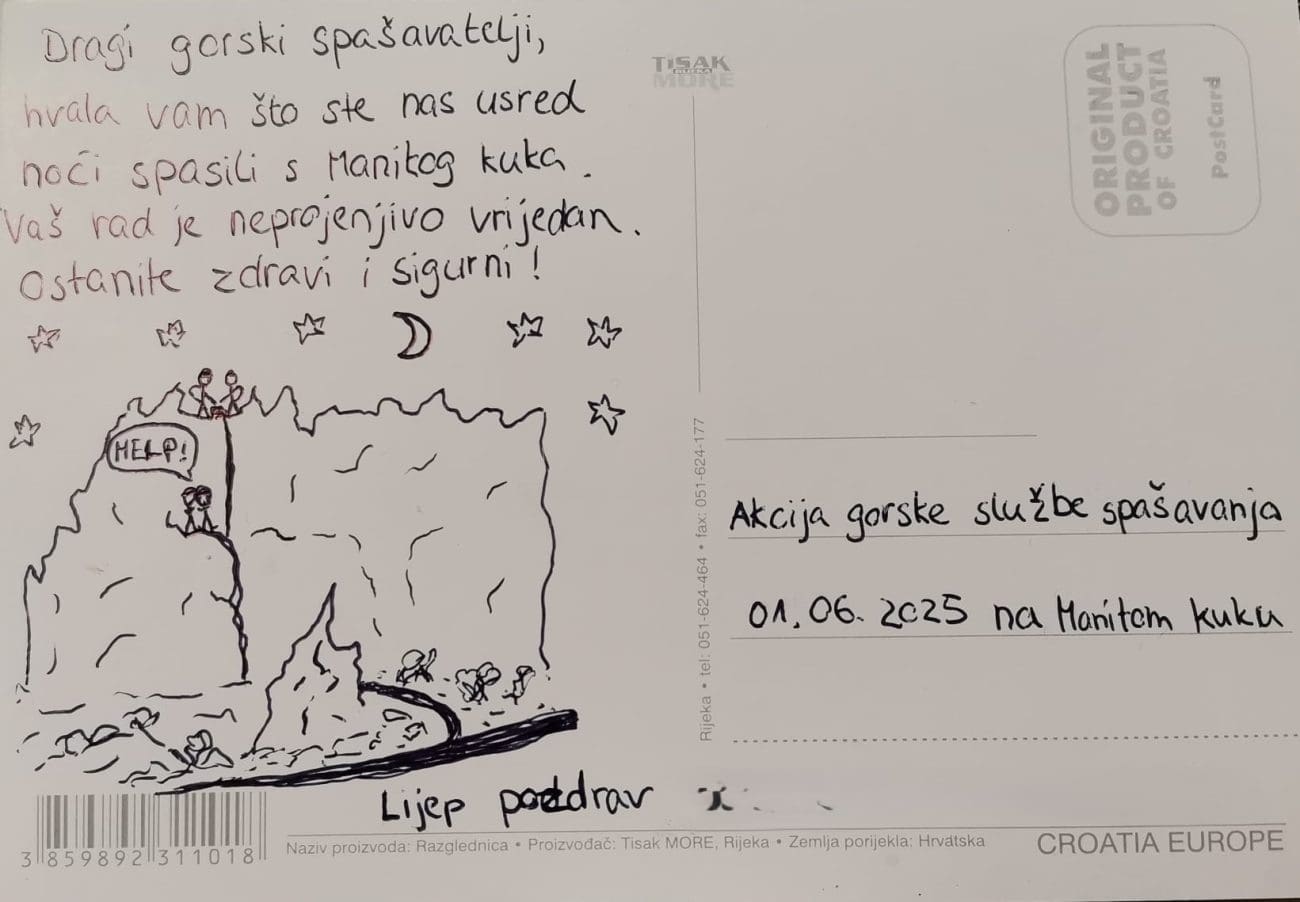 Dragi gorski spašavatelji,
hvala vam što ste nas usred
noći spasili s Manitog kuka.
Vaš rad je neprojenjivo vrijedan.
Ostanite zdravi i sigurni!
HELP!
Lijep pozdrav
TiSAK
RIJEKA
MORE
ORIGINAL
PRODUCT
OF CROATIA
PostCard
Rijeka • tel: 051-624-464 • fax: 051-624-177
Akcija gorske službe spašavanja
01.06.2025 na Manitom kuku
3 859892 311018
Naziv proizvoda: Razglednica • Proizvođač: Tisak MORE, Rijeka • Zemlja porijekla: Hrvatska
CROATIA EUROPE